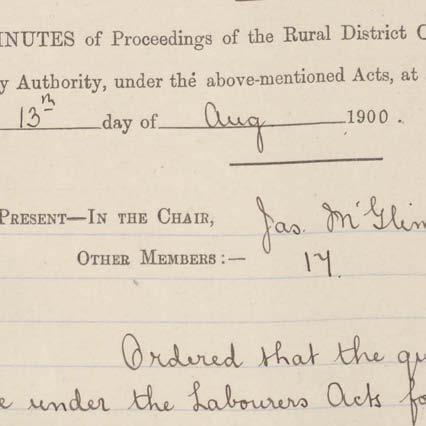 MINUTES of Proceedings of the Rural District C
y Authority, under the above-mentioned Acts, at
13th day of Aug 1900.
PRESENT—IN THE CHAIR, Jas. McGlin
OTHER MEMBERS:— 17.
Ordered that the qu
e under the Labourers Acts fo